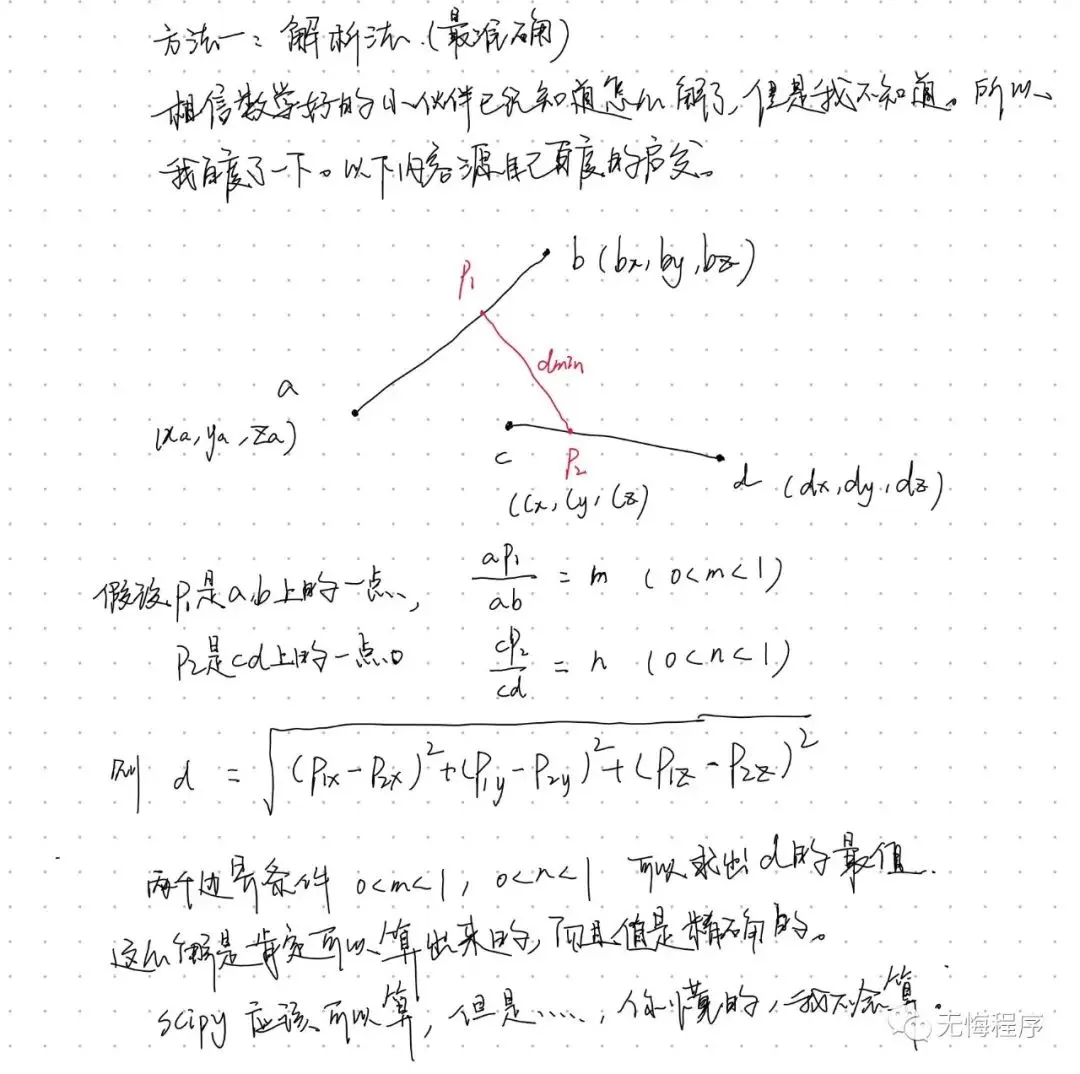 方法一：解析法.(最准确)
相信数学好的小伙伴已经知道怎么解了，但是我不知道。所以、
我百度了一下。以下内容源自己百度的启发。
b (bx, by, bz)
P₁
dmin
a
(xa, ya, za)
c
P₂
(cx, cy, cz)
d (dx, dy, dz)
假设P₁是a,b上的一点、, aP₁/ab = m (0<m<1)
P₂是cd上的一点。 cP₂/cd = n (0<n<1)
则 d = √((P₁x-P₂x)²+(P₁y-P₂y)²+(P₁z-P₂z)²)
两个边界条件 0<m<1, 0<n<1 可以求出d的最值.
这么解是肯定可以算出来的，而且值是精确的。
scipy 应该可以算，但是……，你懂的，我不会算.
无悔程序